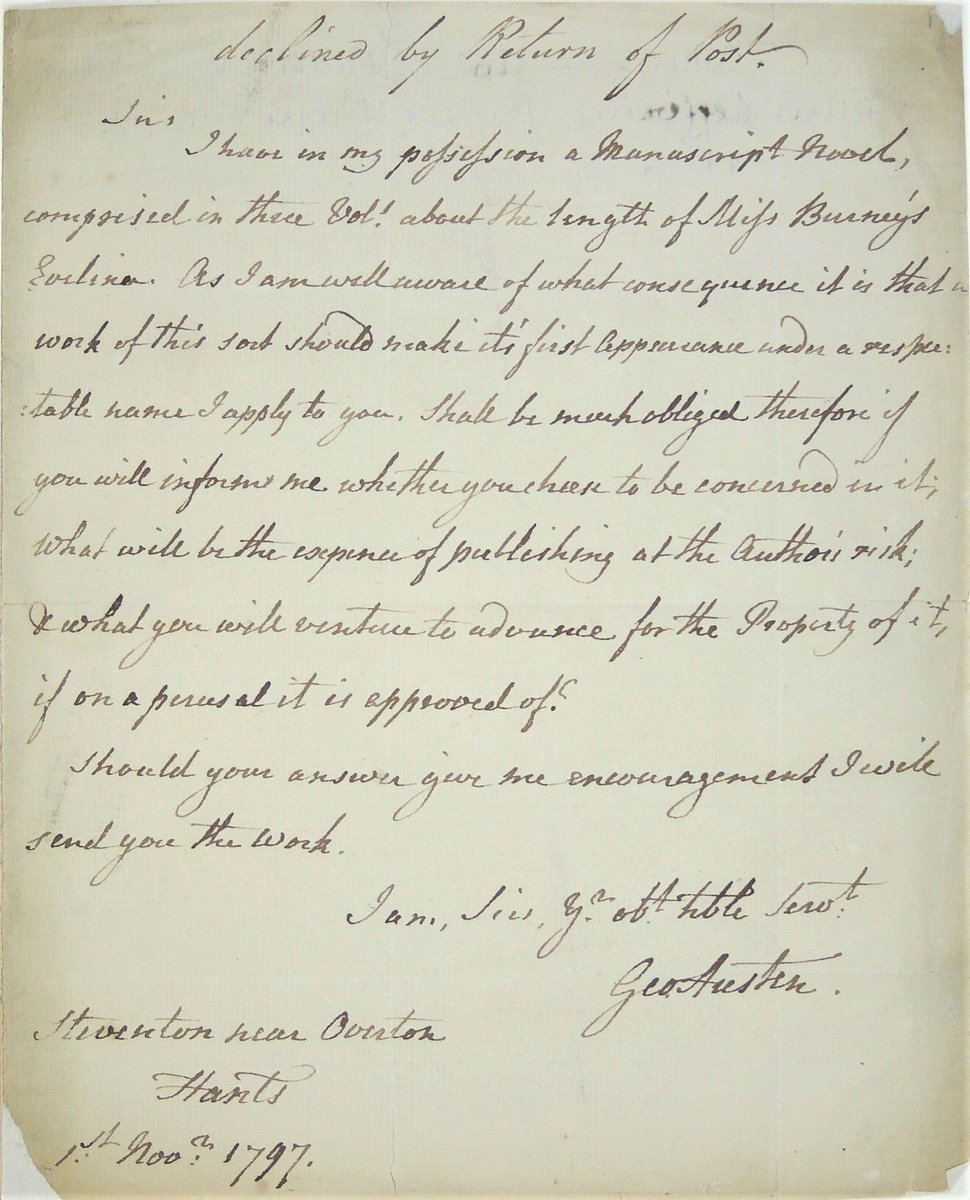 declined by Return of Post.
Sirs
I have in my possession a Manuscript Novel,
comprised in three Vols. about the length of Miss Burney's
Evelina. As I am well aware of what consequence it is that a
work of this sort should make it's first appearance under a respec:
:table name I apply to you. Shall be much obliged therefore if
you will inform me whether you chuse to be concerned in it;
What will be the expense of publishing at the Author's risk;
& what you will venture to advance for the Property of it,
if on a perusal it is approved of?
Should your answer give me encouragement I will
send you the Work.
I am, Sirs, Yr. obt. hble Servt.
Geo Austen.
Steventon near Overton
Hants
1st. Novr. 1797.